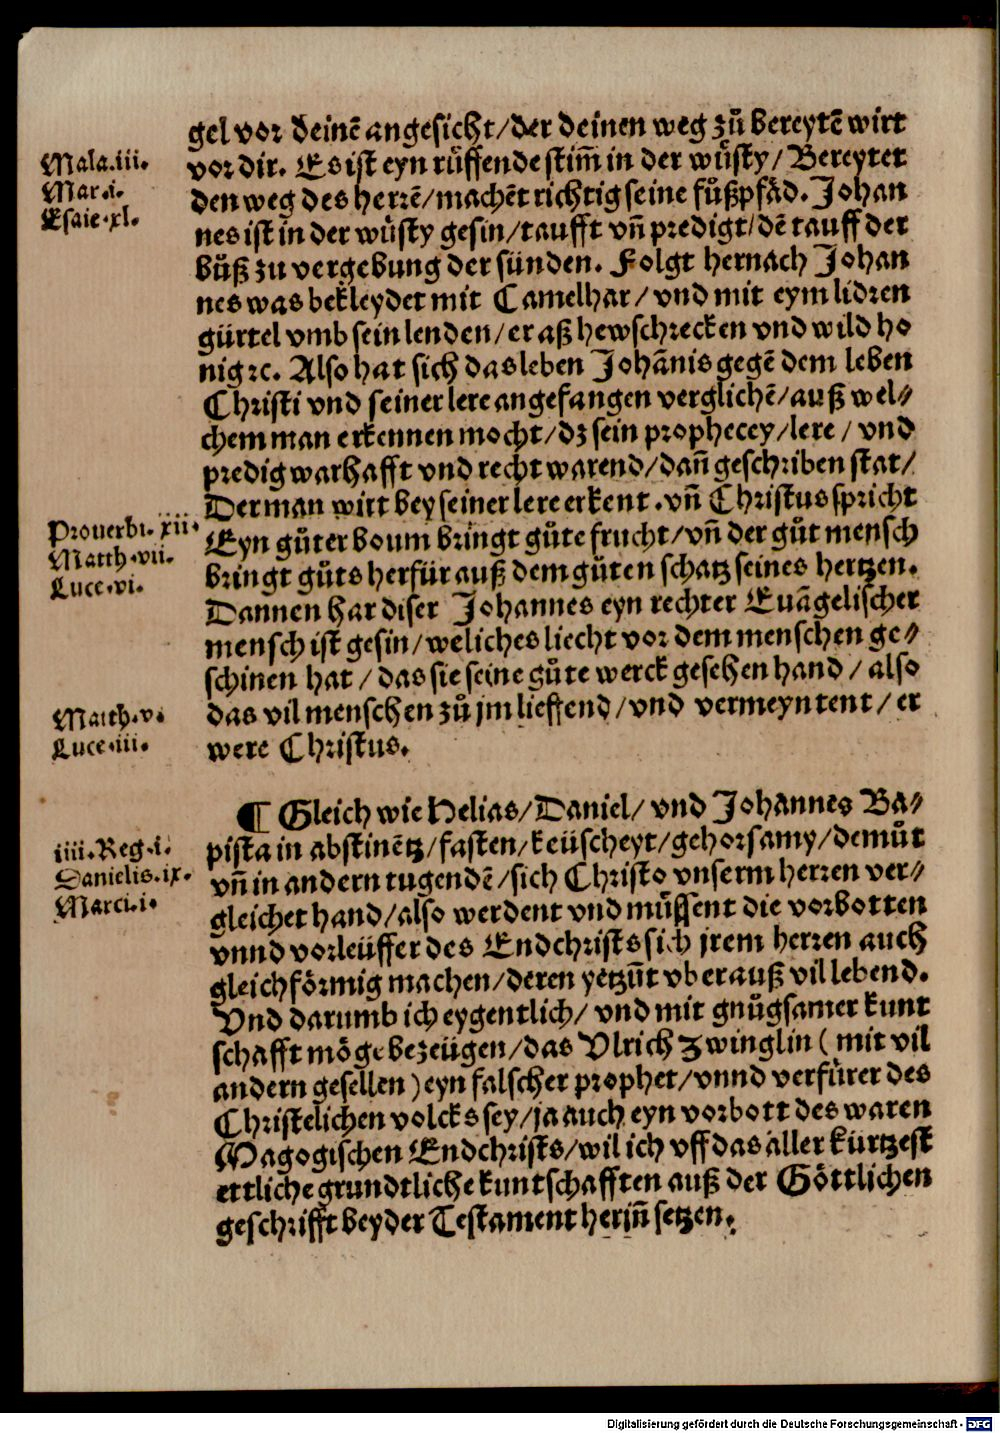 gel vor deinē angesicht/der deinen weg zů bereytē wirt
Mala.iii.
vor dir. Es ist eyn rüffende stim̄ in der wůsty/Bereytet
Mar.i.
den weg des herrē/machēt richtig seine fůßpfäd. Johan
Esaie.xl.
nes ist in der wůsty gesin/taufft vn̄ predigt/dē tauff der
bůß zu vergebung der sünden. Folgt hernach Johan
nes was bekleydet mit Camelhar/vnd mit eym lidren
gürtel vmb sein lenden/er aß hewschrecken vnd wild ho
nig ꝛc. Also hat sich das leben Johānis gegē dem leben
Christi vnd seiner lere angefangen verglichē/auß wel⸗
chem man erkennen mocht/dz sein prophecey/lere/vnd
predig warhafft vnd recht warend/dan̄ geschriben stat/
Der man wirt bey seiner lere erkent. vn̄ Christus spricht
Prouerbi.xii.
Eyn gůter boum bringt gůte frucht/vn̄ der gůt mensch
Matth.vii.
bringt gůts herfür auß dem gůten schatz seines hertzen.
Luce.vi.
Dannen har diser Johannes eyn rechter Euāgelischer
mensch ist gesin/weliches liecht vor dem menschen ge⸗
schinen hat/das sie seine gůte werck gesehen hand/also
das vil menschen zů jm lieffend/vnd vermeyntent/er
Matth.v.
were Christus.
Luce.iii.
¶ Gleich wie Helias/Daniel/vnd Johannes Ba⸗
pista in abstinētz/fasten/keüscheyt/gehorsamy/demůt
iiii.Reg.i.
vn̄ in andern tugendē/sich Christo vnserm herren ver⸗
Danielis.ix.
gleichet hand/also werdent vnd müssent die vorbotten
Marci.i.
vnnd vorleüffer des Endchrists sich jrem herren auch
gleichförmig machen/deren yetzūt vberauß vil lebend.
Vnd darumb ich eygentlich/vnd mit gnůgsamer kunt
schafft möge bezeügen/das Vlrich Zwinglin (mit vil
andern gesellen) eyn falscher prophet/vnnd verfürer des
Christelichen volcks sey/ja auch eyn vorbott des waren
Magogischen Endchrists/wil ich vff das aller kürtzest
ettliche grundtliche kuntschafften auß der Göttlichen
geschrifft beyder Testament herjn̄ setzen.
Digitalisierung gefördert durch die Deutsche Forschungsgemeinschaft - DFG